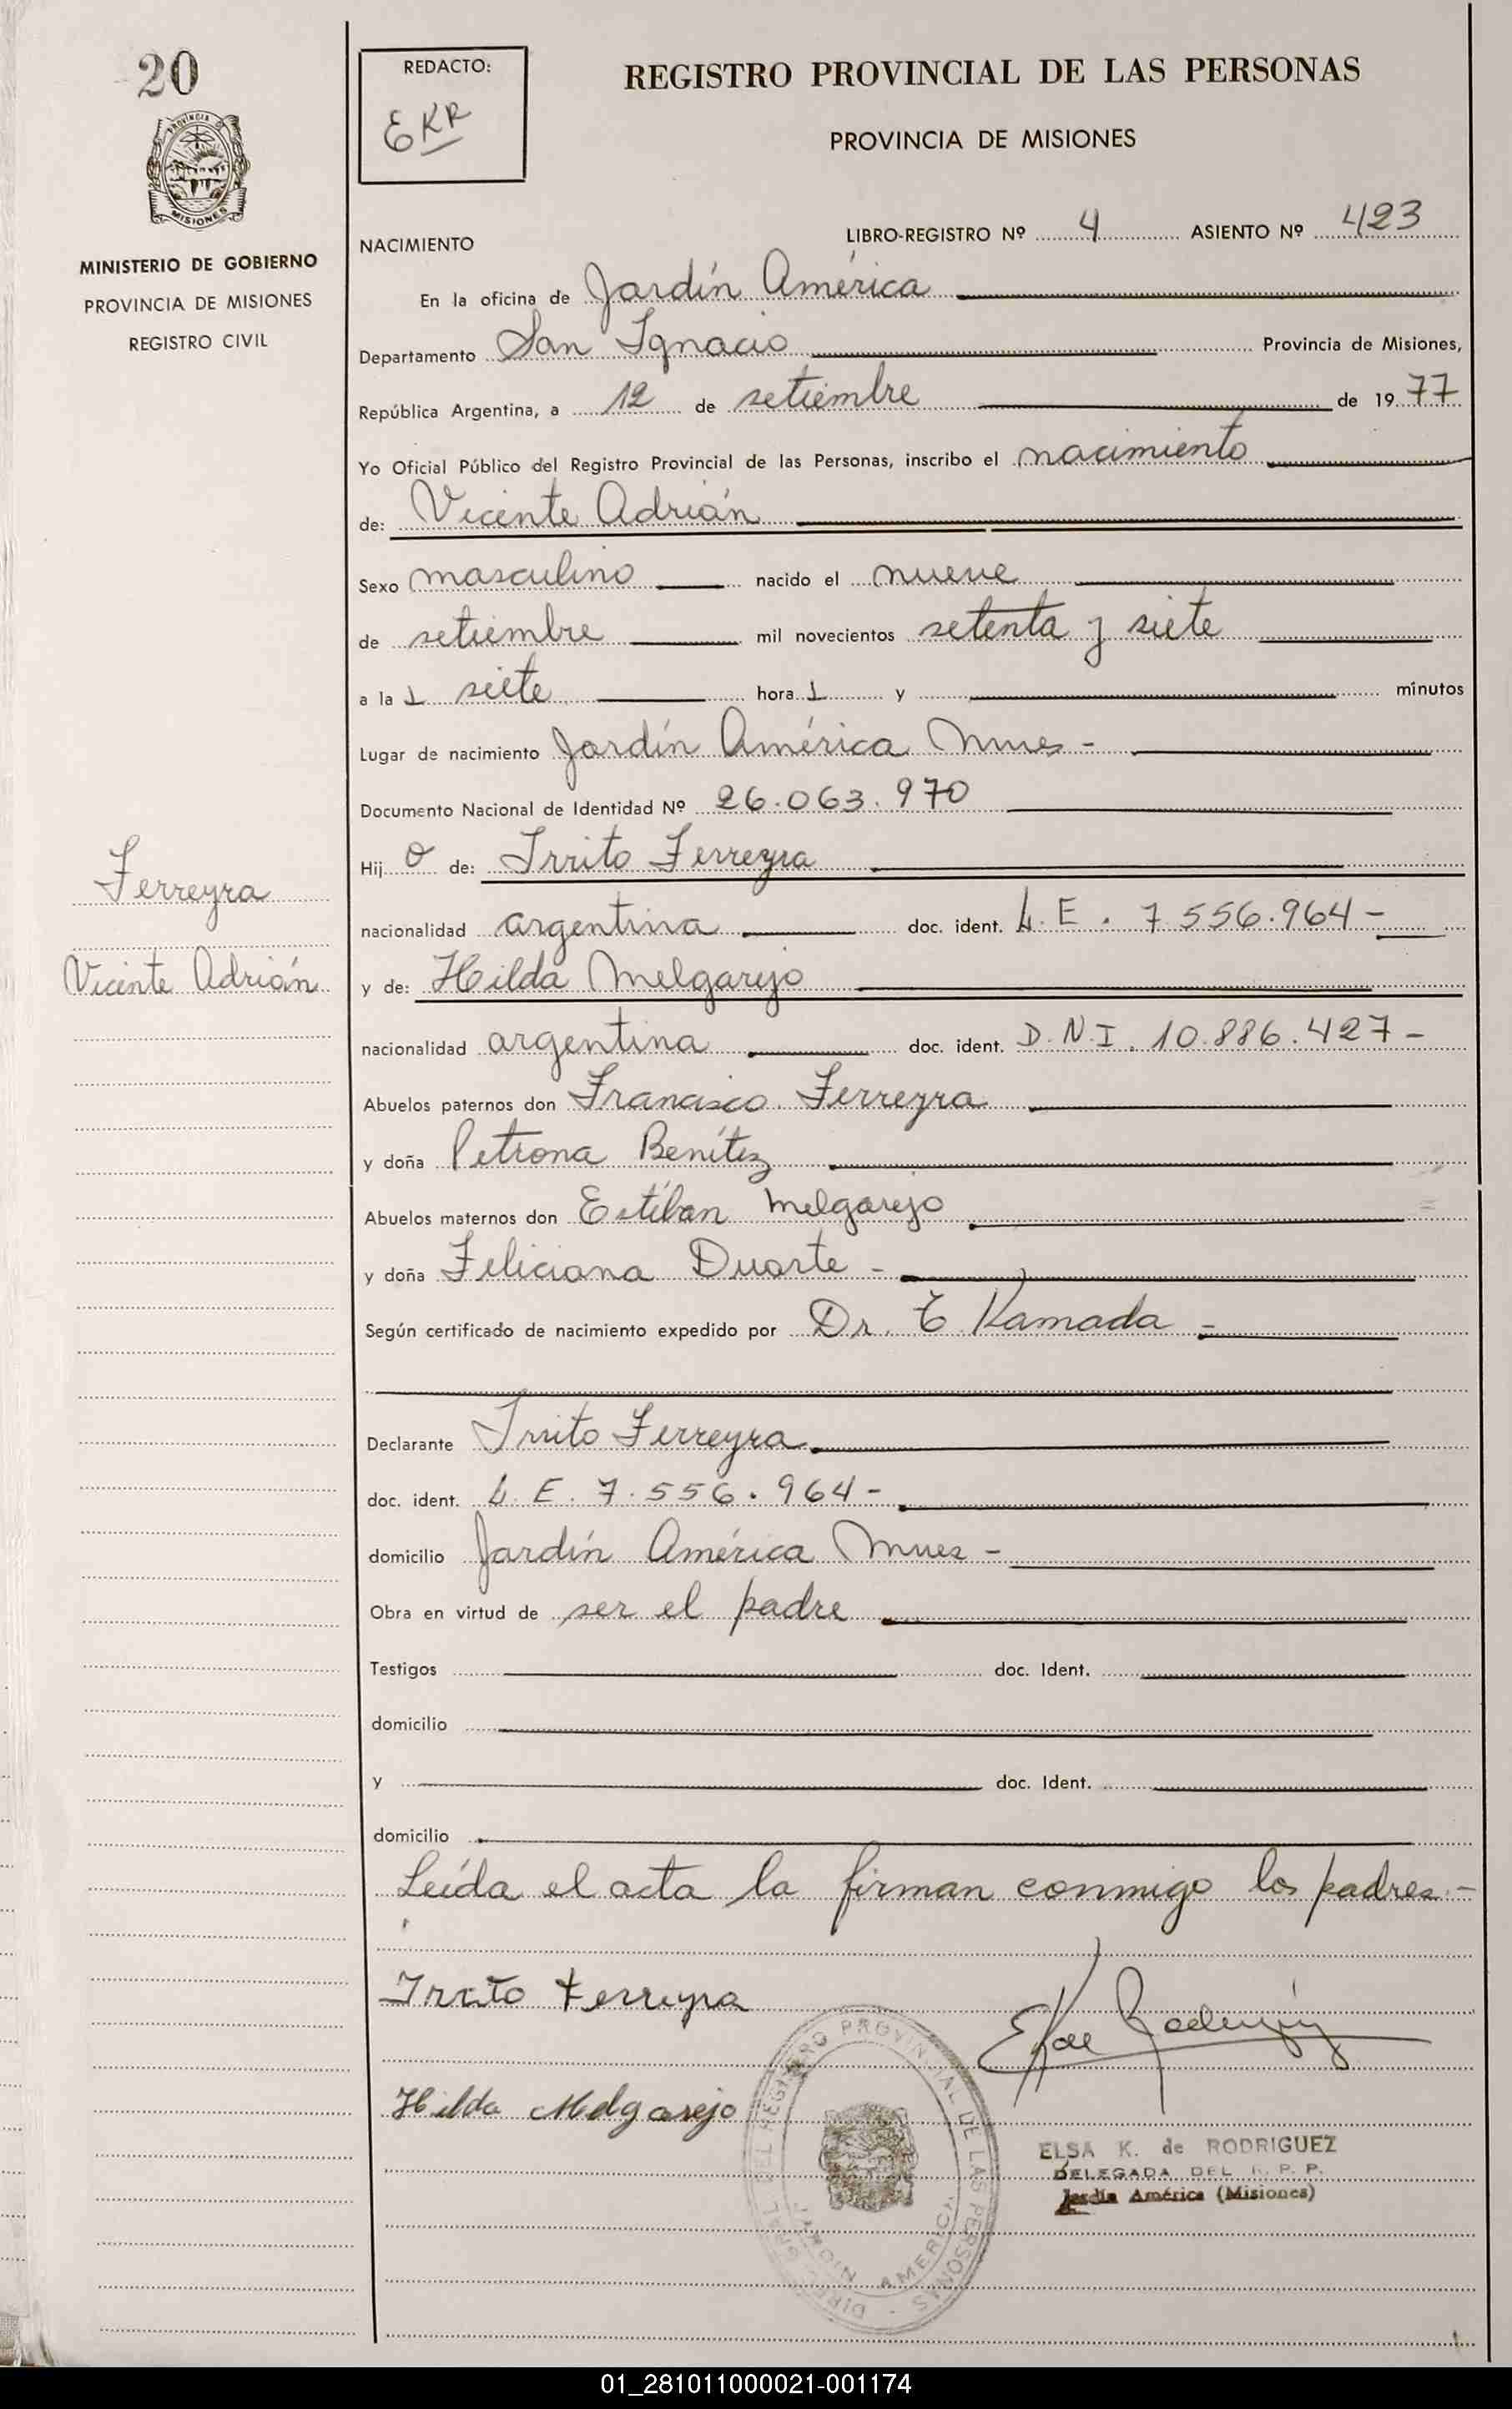 20
PROVINCIA
MISIONES
MINISTERIO DE GOBIERNO
PROVINCIA DE MISIONES
REGISTRO CIVIL
Ferreyra
Vicente Adrián
REDACTO:
EKR
REGISTRO PROVINCIAL DE LAS PERSONAS
PROVINCIA DE MISIONES
LIBRO-REGISTRO Nº 4 ASIENTO Nº 423
NACIMIENTO
En la oficina de Jardín América
Departamento San Ignacio Provincia de Misiones,
República Argentina, a 12 de setiembre de 1977
Yo Oficial Público del Registro Provincial de las Personas, inscribo el nacimiento
de: Vicente Adrián
Sexo masculino nacido el nueve
de setiembre mil novecientos setenta y siete
a la s siete hora s y minutos
Lugar de nacimiento Jardín América Mnes -
Documento Nacional de Identidad Nº 26.063.970
Hijo de: Irrito Ferreyra
nacionalidad argentina doc. ident. L.E. 7.556.964-
y de: Hilda Melgarejo
nacionalidad argentina doc. ident. D.N.I. 10.886.427-
Abuelos paternos don Francisco Ferreyra
y doña Petrona Benítez
Abuelos maternos don Estéban Melgarejo
y doña Feliciana Duarte -
Según certificado de nacimiento expedido por Dr. E Kamada -
Declarante Irrito Ferreyra
doc. ident. L.E. 7.556.964-
domicilio Jardín América Mnes -
Obra en virtud de ser el padre
Testigos doc. Ident.
domicilio
y doc. Ident.
domicilio
Leída el acta la firman conmigo los padres.-
Irrito Ferreyra
Hilda Melgarejo
REGISTRO PROVINCIAL DE LAS PERSONAS
JARDIN AMERICA
ELSA K. de RODRIGUEZ
DELEGADA DEL R. P. P.
Jardín América (Misiones)
01_281011000021-001174